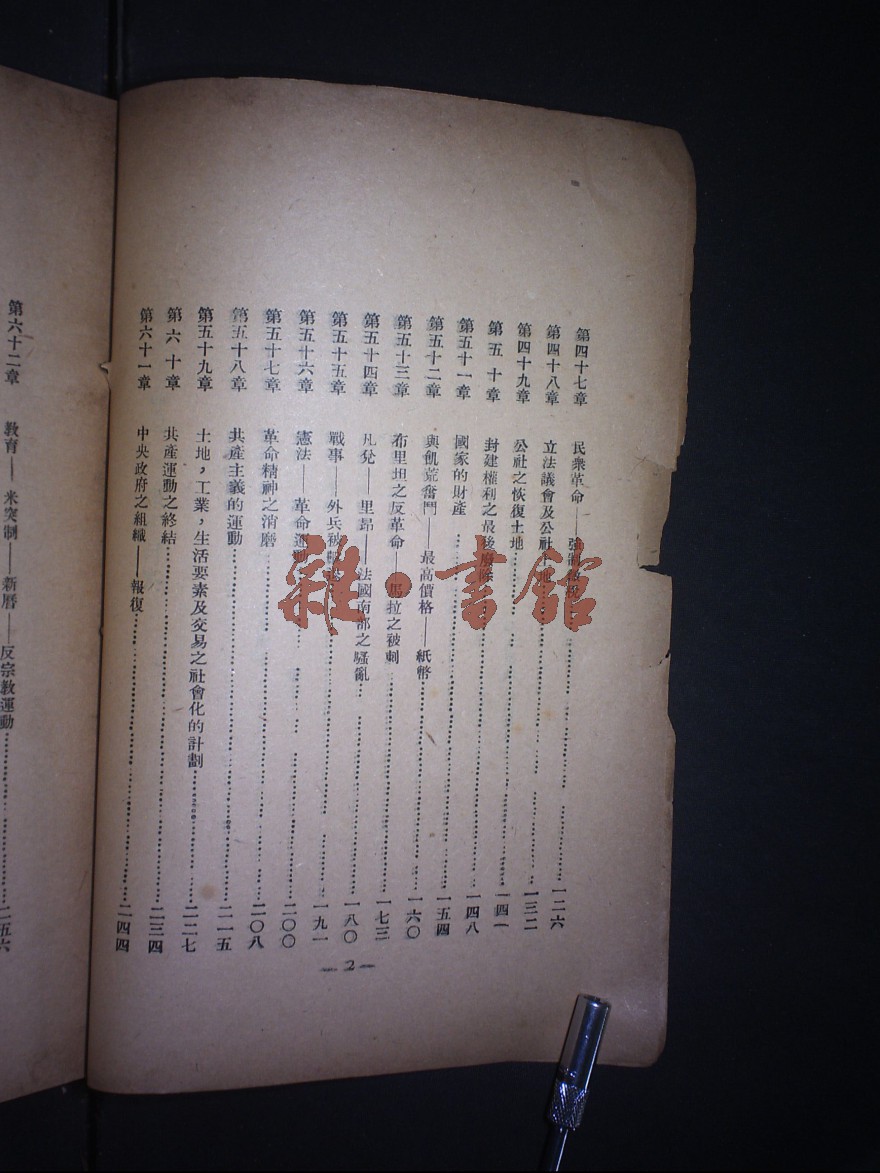 第四十七章 民衆革命——強制徵稅……一二六
第四十八章 立法議會及公社土地……一三二
第四十九章 公社之恢復土地……一四一
第五十章 封建權利之最後廢除……一四八
第五十一章 國家的財產……一五四
第五十二章 與飢荒奮鬥——最高價格——紙幣……一六〇
第五十三章 布里坦之反革命——馬拉之被刺……一七三
第五十四章 凡兌——里昂——法國南部之騷亂……一八〇
第五十五章 戰事——外兵被……一九一
第五十六章 憲法——革命運動……二〇〇
第五十七章 革命精神之消磨……二〇八
第五十八章 共產主義的運動……二一五
第五十九章 土地，工業，生活要素及交易之社會化的計劃……二二七
第六十章 共產運動之終結……二三四
第六十一章 中央政府之組織——報復……二四四
—2—
第六十二章 教育——米突制——新曆——反宗教運動……二五六
雜·書館